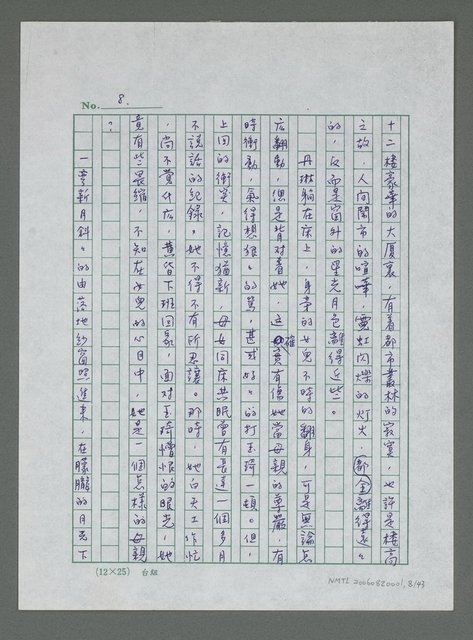 No. 8.
十二樓豪華的大厦裏，有着都市叢林的寂寞，也許是樓高
之故，人间闹市的喧嘩，霓虹闪爍的灯火都全離得遠々
的，反而是窗外的星光月色離得近些。
丹琳躺在床上，身旁的女兒不時的翻身，可是無論怎
庅翻動，偲是背对着她，這確實有傷她當母親的尊嚴，有
時衝動、氣得想狠々的罵，甚或好々的打玉琦一頓。但，
上回的衝突，記憶猶新，母女同床共眠曾有長達一個多月
不説話的紀錄。她不得不有所忍讓。那時，她白天工作忙
，尚不覺什庅，黄昏下班回家，面对玉琦憎恨的眼光，她
竟有些畏縮，不知在女兒的心目中，她是一個怎樣的母親
？
一弯新月斜々的由落地紗窗照進來，在朦朧的月光下
(12×25) 台組
NMTL 20060820001, 8/43